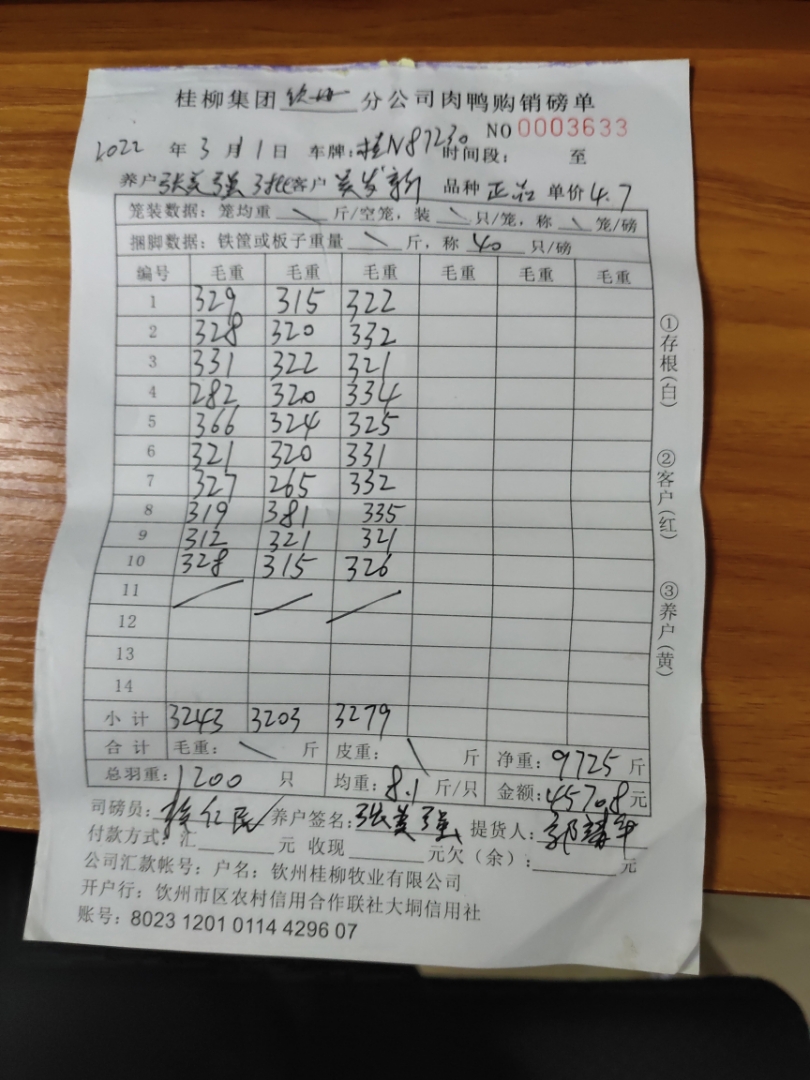 桂柳集团钦州分公司肉鸭购销磅单
NO 0003633
2022 年 3 月 1 日 车牌: 桂N87230 时间段: 至
养户 张美强 3批 客户 吴发新 品种 正品 单价 4.7
笼装数据: 笼均重 \ 斤/空笼, 装 \ 只/笼, 称 \ 笼/磅
捆脚数据: 铁筐或板子重量 \ 斤, 称 40 只/磅
编号 毛重 毛重 毛重 毛重 毛重 毛重
1 329 315 322
2 328 320 332
3 331 322 321
4 282 320 334
5 366 324 325
6 321 320 331
7 327 265 332
8 319 381 335
9 312 321 321
10 328 315 326
11 / / /
12
13
14
小计 3243 3203 3279
合计 毛重: \ 斤 皮重: \ 斤 净重: 9725 斤
总羽重: 1200 只 均重: 8.1 斤/只 金额: 45708 元
司磅员: 徐仁民 养户签名: 张美强 提货人:
付款方式: 汇 元 收现 元欠(余): 元
公司汇款帐号: 户名: 钦州桂柳牧业有限公司
开户行: 钦州市区农村信用合作联社大垌信用社
账号: 8023 1201 0114 4296 07
①存根(白)
②客户(红)
③养户(黄)